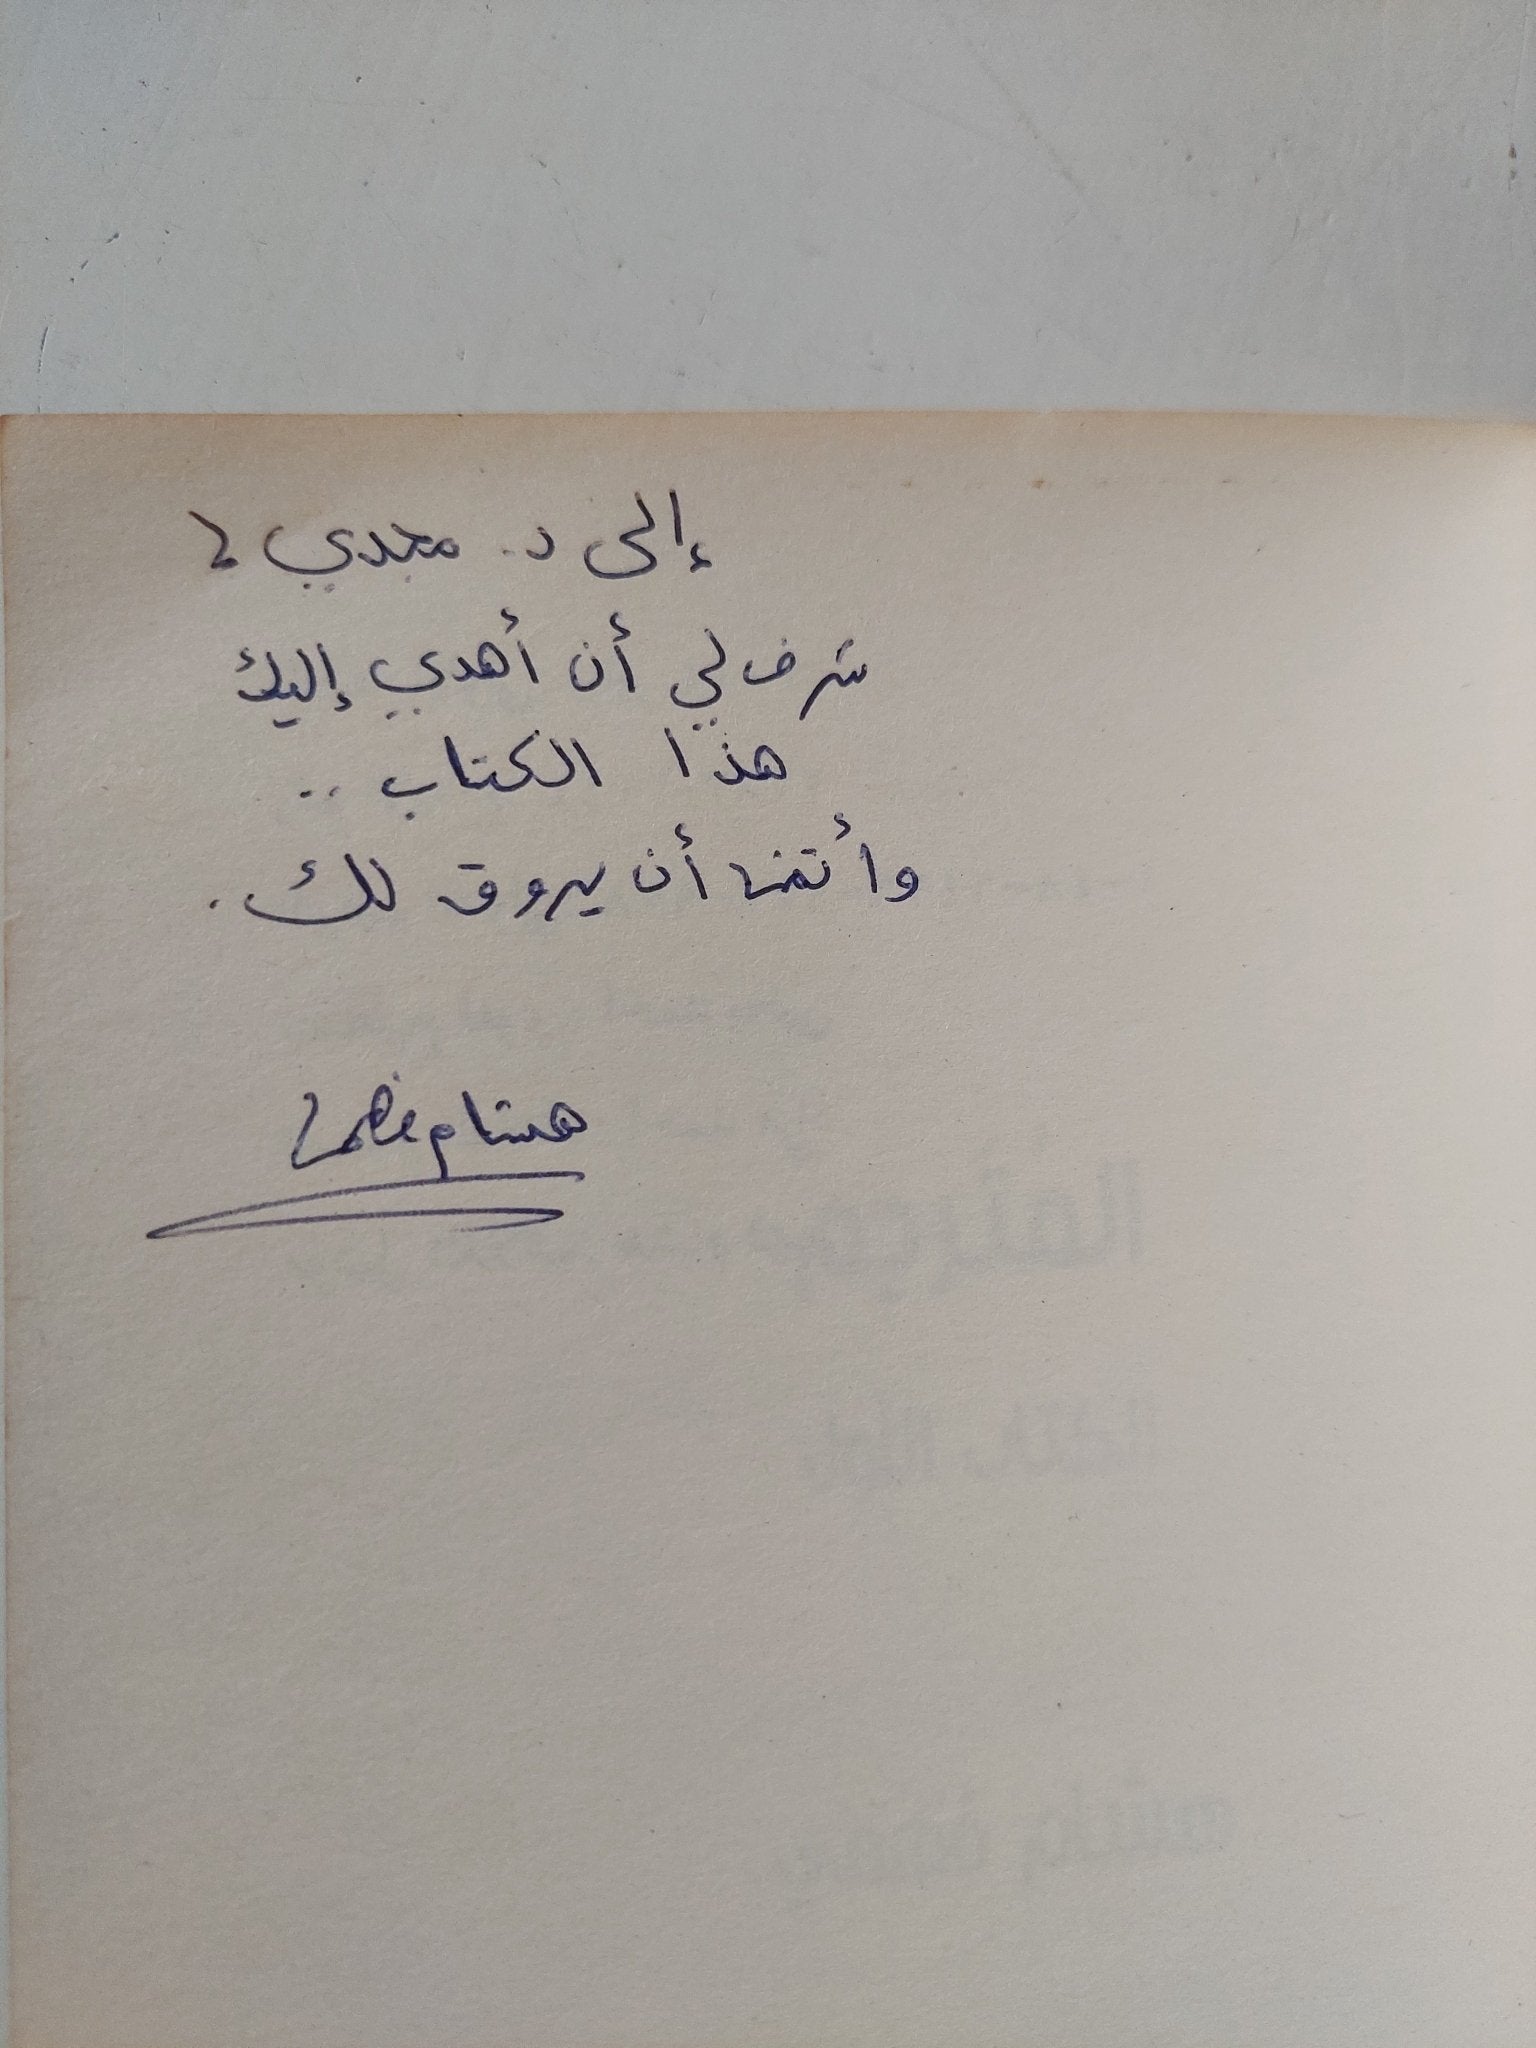 إلى د. مجدي
شرف لي أن أهدي إليك
هذا الكتاب ..
وأتمنى أن يروق لك.
هشام فهمي